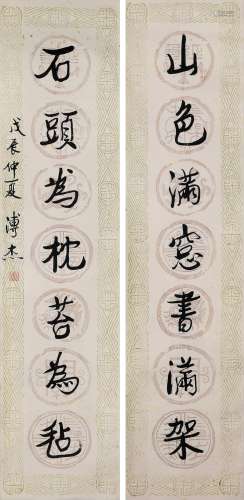 山色滿窓書滿架
石頭為枕苔為氈
戊辰仲夏 溥杰